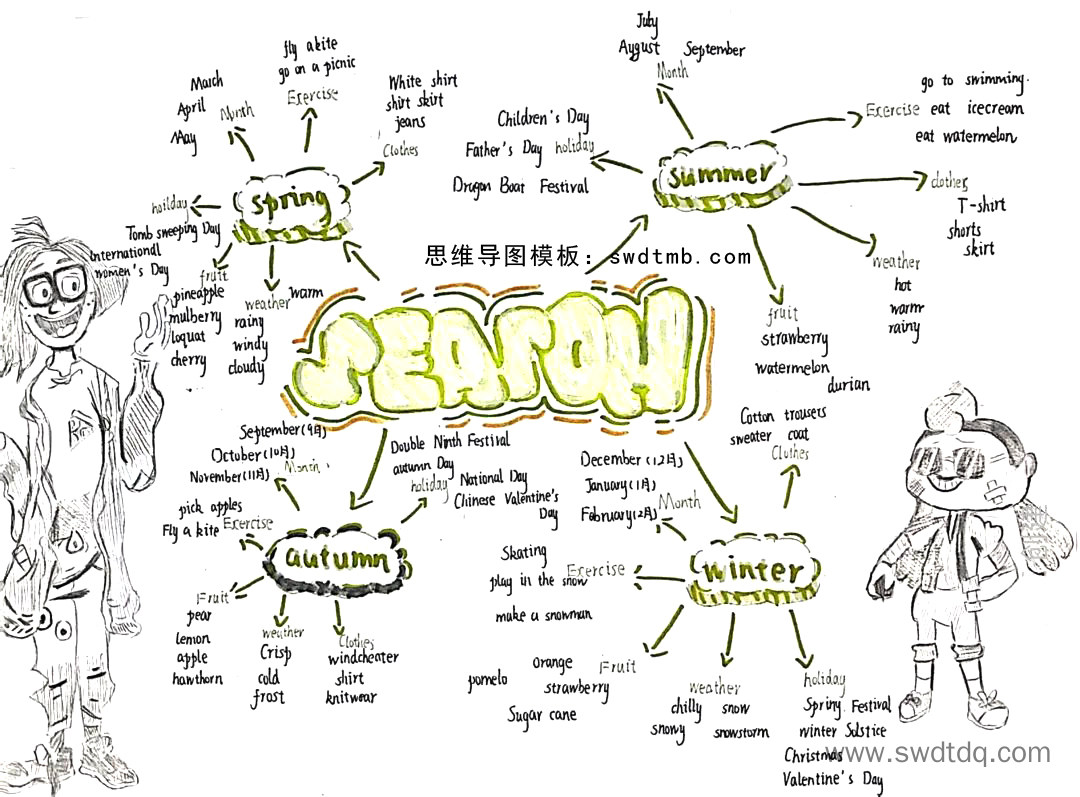 思维导图模板：swdtmb.com
SEASON
spring
March
April
May
Month
fly a kite
go on a picnic
Exercise
White shirt
shirt skirt
jeans
Clothes
hoilday
Tomb sweeping Day
International
women's Day
fruit
pineapple
mulberry
loquat
cherry
weather warm
rainy
windy
cloudy
summer
July
August September
Month
Children's Day
Father's Day holiday
Dragon Boat Festival
go to swimming.
Exercise eat icecream
eat watermelon
clothes
T-shirt
shorts
skirt
weather
hot
warm
rainy
fruit
strawberry
watermelon
durian
autumn
September(9月)
October(10月)
November(11月) Month
pick apples
Fly a kite Exercise
Double Ninth Festival
autumn Day
holiday National Day
Chinese Valentine's
Day
Fruit
pear
lemon
apple
hawthorn
weather
Crisp
cold
frost
Clothes
windcheater
shirt
knitwear
winter
December(12月)
January(1月)
February(2月) Month
Cotton trousers
sweater coat
Clothes
Skating
play in the snow Exercise
make a snowman
Orange Fruit
pomelo strawberry
Sugar cane
weather
chilly snow
snowy snowstorm
holiday
Spring Festival
winter Solstice
Christmas
Valentine's Day
www.swdtdq.com